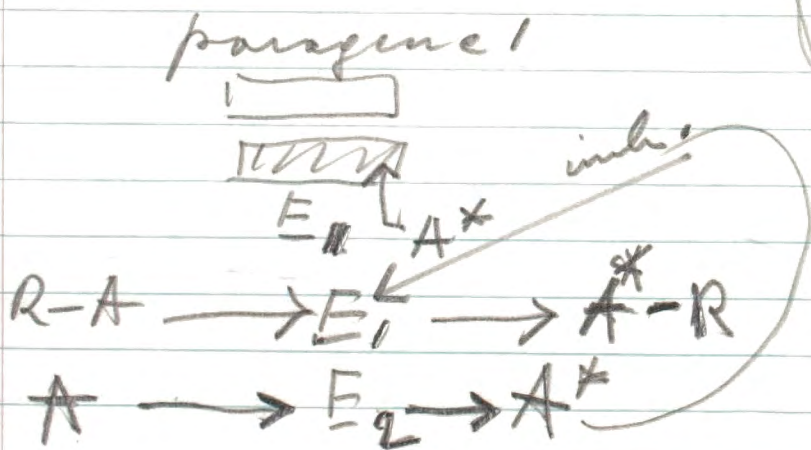 paragene 1
inh.
E A*
R-A → E₁ → A*-R
A → E₂ → A*